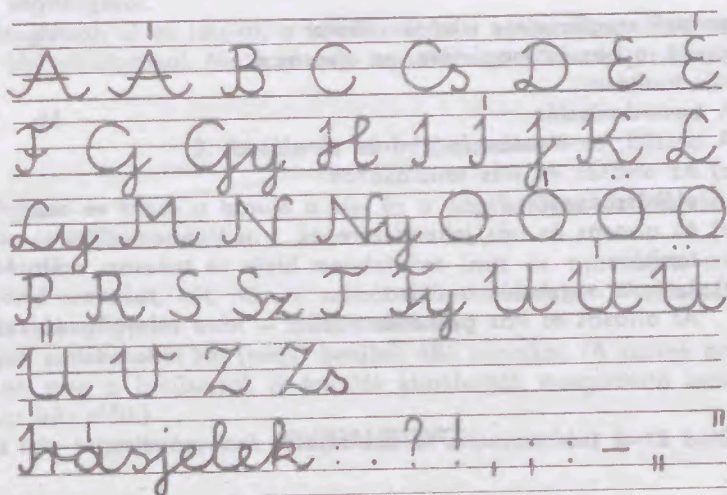 A Á B C Cs D E É
F G Gy H I Í J K L
Ly M N Ny O Ó Ö O
P R S Sz T Ty U Ú Ü
Ű V Z Zs
Írásjelek: . ? ! , ; : – „ ”